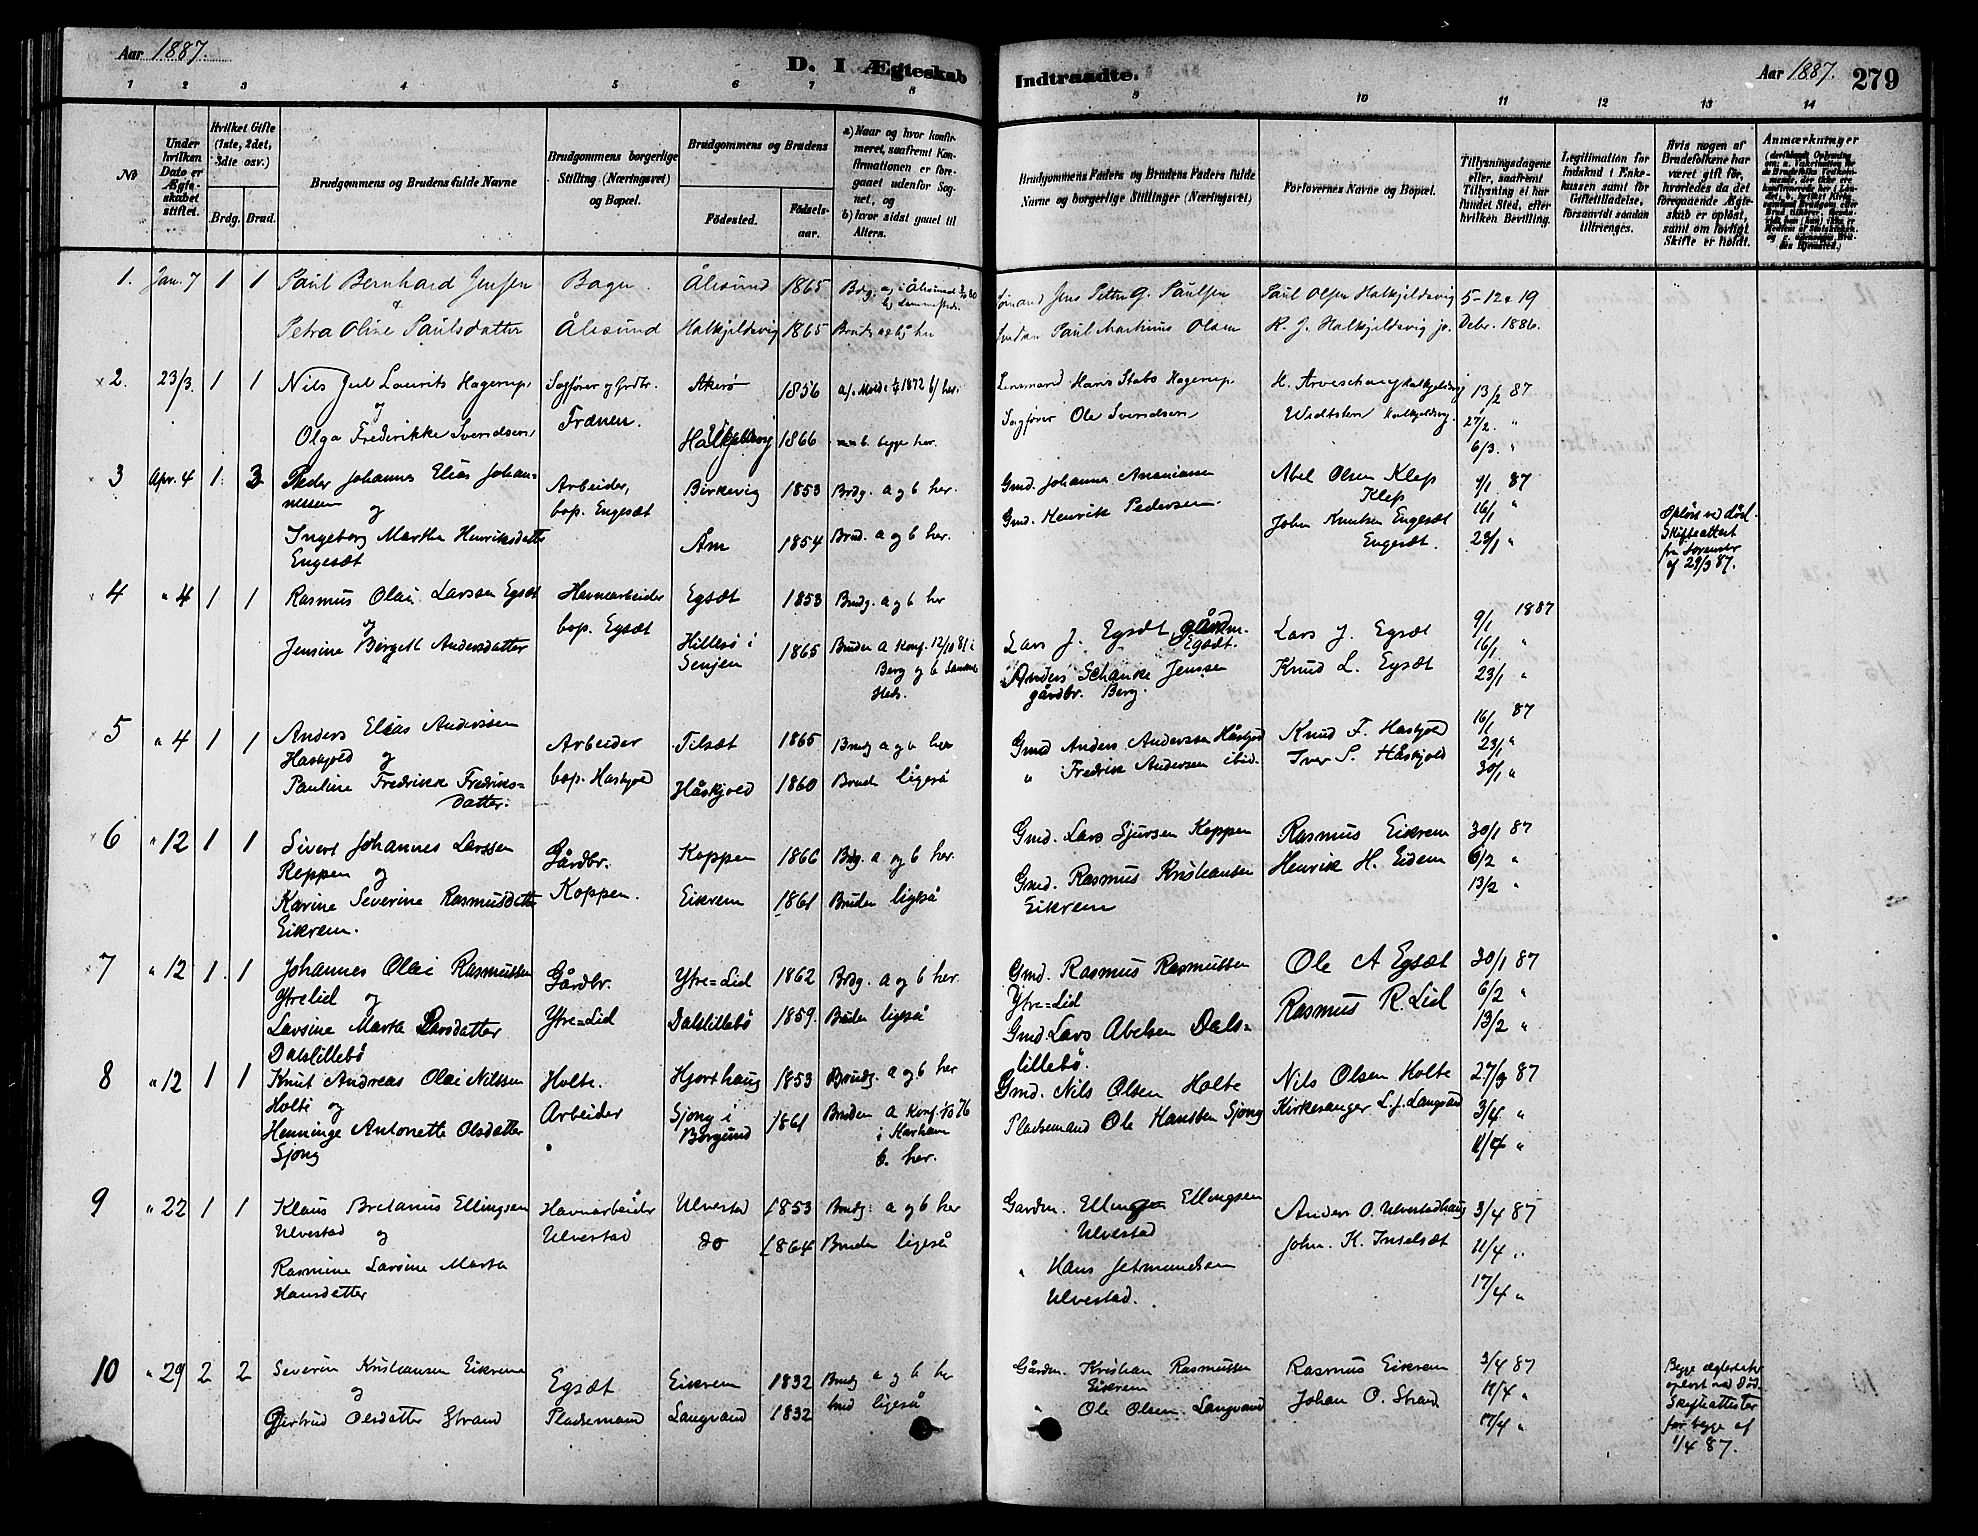 Aar 1887.
D. I Ægteskab Indtraadte.
Aar 1887. 279
1 2 3 4 5 6 7 8 9 10 11 12 13 14
No
Under hvilken Dato er Ægteskabet stiftet.
Hvilket Gifte (1ste, 2det, 3die osv.)
Brdg. Brud.
Brudgommens og Brudens fulde Navne
Brudgommens borgerlige Stilling (Næringsvei) og Bopæl.
Brudgommens og Brudens
Fødested. Fødselsaar.
a) Naar og hvor konfirmeret, saafremt Konfirmationen er foregaaet udenfor Sognet, og
b) hvor sidst gaaet til Alters.
Brudgommens Faders og Brudens Faders fulde Navne og borgerlige Stillinger (Næringsvei)
Forlovernes Navne og Bopæl.
Tillysningsdagene eller, saafremt Tillysning ei har fundet Sted, efter hvilken Bevilling.
Legitimation for Indskud i Enkekassen samt for Giftetilladelse, forsaavidt saadan tiltrænges.
Hvis nogen af Brudefolkene har været gift før, hvorledes da det foregaaende Ægteskab er opløst, samt om lovligt Skifte er holdt.
Anmærkninger
1. Jan. 7 1 1 Paul Bernhard Jensen Bager Ålesund 1865 Jens Petter G. Paulsen Paul Olsen Halkjeldsvig 5-12 & 19
&
Petra Oline Paulsdatter Ålesund Halkjeldsvig 1865 Paul Martinus Olsen K. J. Halkjeldsvig jr. Debr. 1886.
2. 23/3. 1 1 Nils Jul Laurits Hagerup, Sagfører og Grdbr. Akerø 1856 a/. Molde 1872 b/ her. Lensmand Hans Stabo Hagerup. 13/2 87
og Frænen.
Olga Frederikke Svendsen, Halkjeldsvig 1866 b. begge her. Sagfører Ole Svendsen 27/2. "
6/3. "
3 Apr. 4 1. 3 Peder Johannes Elias Johan- Arbeider, Birkevig 1853 Brdg. a og b her. Gmd. Johannes Ananiassen Abel Olsen Klep 9/1 87
nessen og bop. Engesæt Klep 16/1 "
Ingeborg Martha Henriksdatter Åm 1854 Brud. a og b her. Gmd. Henrik Pedersen John Knutsen Engesæt 23/1 "
Engesæt Engesæt.
Opløst ved død. Skifteattest fra Sorenskr af 29/3 87.
4 " 4 1 1 Rasmus Olai Larssen Egsæt Havnearbeider Egsæt 1853 Brudg. a og b her Lars J. Egsæt, gårdm. Egsæt. Lars J. Egsæt 9/1 1887
og bop. Egsæt 16/1 "
Jensine Birgitt Andersdatter Hillesø i Senjen 1865 Bruden a Konf. 12/10 81 i Berg og b sammeSteds. Anders Schanke Jenssen gårdbr. Berg. Knud L. Egsæt 23/1 "
5 " 4 1 1 Anders Elias Anderssen Arbeider Tilsæt 1865 Brudg a og b her Gmd Anders Anderssen Håskjold Knud F. Haskjold 16/1 87
Haskjold og bop. Haskjold 23/1 "
Pauline Fredrikke Fredriks= Håskjold 1860 Brud ligeså " Fredrik Andersen ibid. Iver S. Håskjold 30/1 "
datter.
6 " 12 1 1 Sivert Johannes Larssen Gårdbr. Koppen 1866 Brdg. a og b her. Gmd. Lars Sjursen Koppen Rasmus Eikrem 30/1 87
Koppen og Koppen. 6/2 "
Karine Severine Rasmusdatter Eikrem 1861 Bruden ligeså Gmd. Rasmus Kristiansen Henrik H. Eidem 13/2 "
Eikrem. Eikrem
7 " 12 1. 1 Johannes Olai Rasmussen Gårdbr. Ytre=Lid 1862 Brdg. a og b her. Gmd. Rasmus Rasmussen Ole A Egsæt 30/1 87
Ytrelid og Ytre=Lid 6/2 "
Larsine Marta Larsdatter Ytre=Lid Dalslillebö 1859. Bruden ligeså Gmd. Lars Abelsen Dals= Rasmus R. Lid 13/2 "
Dalslillebö lillebö.
8 " 12 1 1 Knut Andreas Olai Nilssen Holte. Hjorthaug 1853 Brudg. a og b her Gmd. Nils Olsen Holte Nils Olsen Holte 27/3 87
Holte og Arbeider 3/4 "
Henninge Antonette Olsdatter Sjong i Borgund 1861 Bruden a Konf. 1/10 76 i b. her. Pladsemand Ole Hanssen Sjong Kirkesanger L. J. Langvand 11/4 "
Sjong
9 " 22 1 1 Klaus Bretanus Ellingsen Havnarbeider Ulvestad 1853 Brudg. a og b her Gardm. Elling Ellingsen Anders O. Ulvestadhaug 3/4 87
Ulvestad og Ulvestad do 1864 Bruden ligeså Ulvestad John. K. Inselsæt 11/4 "
Rasmine Larsine Marta " Hans Jetmundsen 17/4 "
Hansdatter Ulvestad.
10 " 29 2 2 Severin Kristiansen Eikrem Egsæt Eikrem 1832 Brudg a og b her Gårdm. Kristian Rasmussen Rasmus Eikrem 3/4 87
og Eikrem 11/4 "
Gjertrud Olsdatter Strand Pladsemand Langvand 1832 brud ligeså " Ole Olsen Langvand Johan O. Strand 17/4 "
Begge ægteskaber opløst ved død. Skifteattester for begge af 1/4 87.